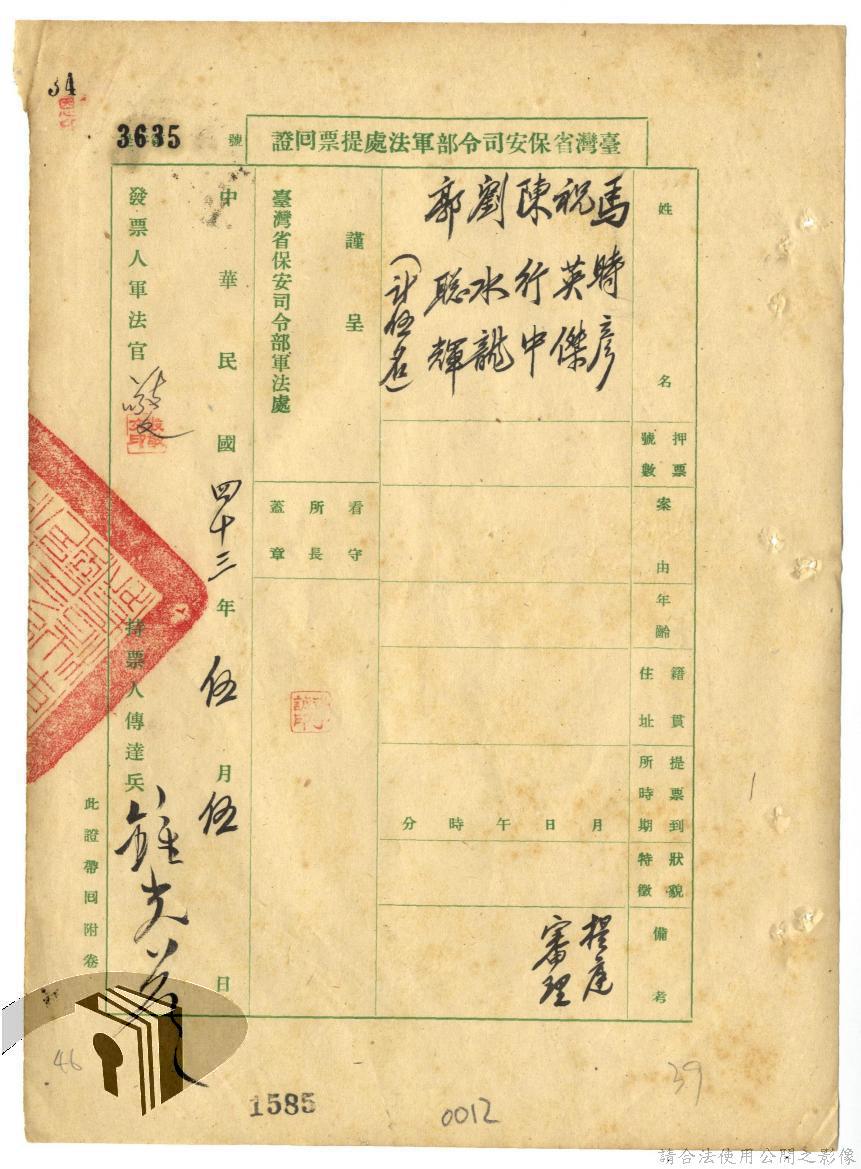 34
3635 號
臺灣省保安司令部軍法處提票回證
姓名
馬時彥
祝英傑
陳行中
劉水龍
郭聰輝
(計伍名)
押票號數
案由
年齡
籍貫住址
提票到所時期
月 日 午 時 分
狀貌特徵
備考
提庭審理
謹呈
臺灣省保安司令部軍法處
看守所長蓋章
中華民國四十三年伍月伍日
發票人軍法官
持票人傳達兵
此證帶回附卷
46
1585
0012
39
請合法使用公開之影像